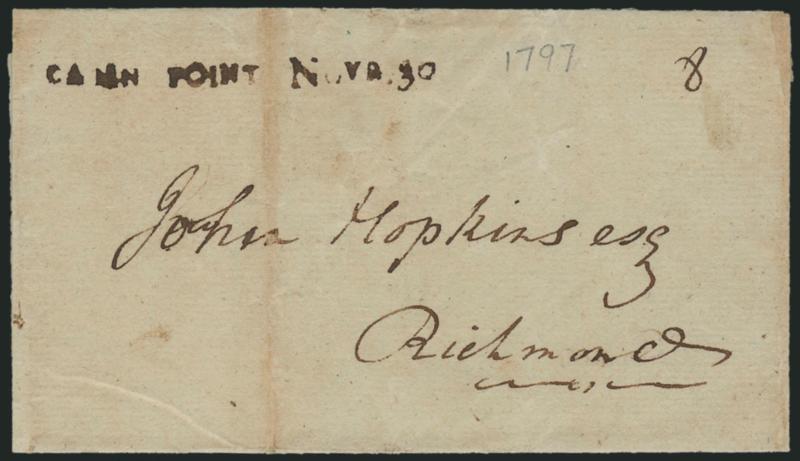 CANN POINT NOVR.30 1797 8
John Hopkins esq
Richmond